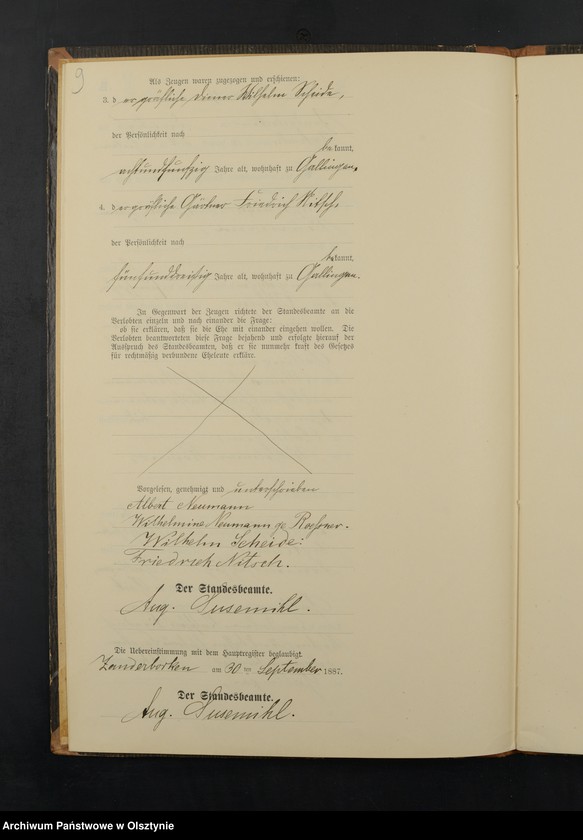 9
Als Zeugen waren zugezogen und erschienen:
3. der gräfliche Diener Wilhelm Scheide,
der Persönlichkeit nach
bekannt,
achtundfünfzig Jahre alt, wohnhaft zu Gallingen.
4. der gräfliche Gärtner Friedrich Nitsch,
der Persönlichkeit nach
bekannt,
fünfunddreißig Jahre alt, wohnhaft zu Gallingen.
In Gegenwart der Zeugen richtete der Standesbeamte an die
Verlobten einzeln und nach einander die Frage:
ob sie erklären, daß sie die Ehe mit einander eingehen wollen. Die
Verlobten beantworteten diese Frage bejahend und erfolgte hierauf der
Ausspruch des Standesbeamten, daß er sie nunmehr kraft des Gesetzes
für rechtmäßig verbundene Eheleute erkläre.
Vorgelesen, genehmigt und unterschrieben
Albert Neumann
Wilhelmine Neumann ge
Wilhelm Scheide.
Friedrich Nitsch.
Der Standesbeamte.
Aug. Susemihl.
Die Uebereinstimmung mit dem Hauptregister beglaubigt.
Zanderborken am 30 ten September 1887.
Der Standesbeamte.
Aug. Susemihl.
Archiwum Państwowe w Olsztynie